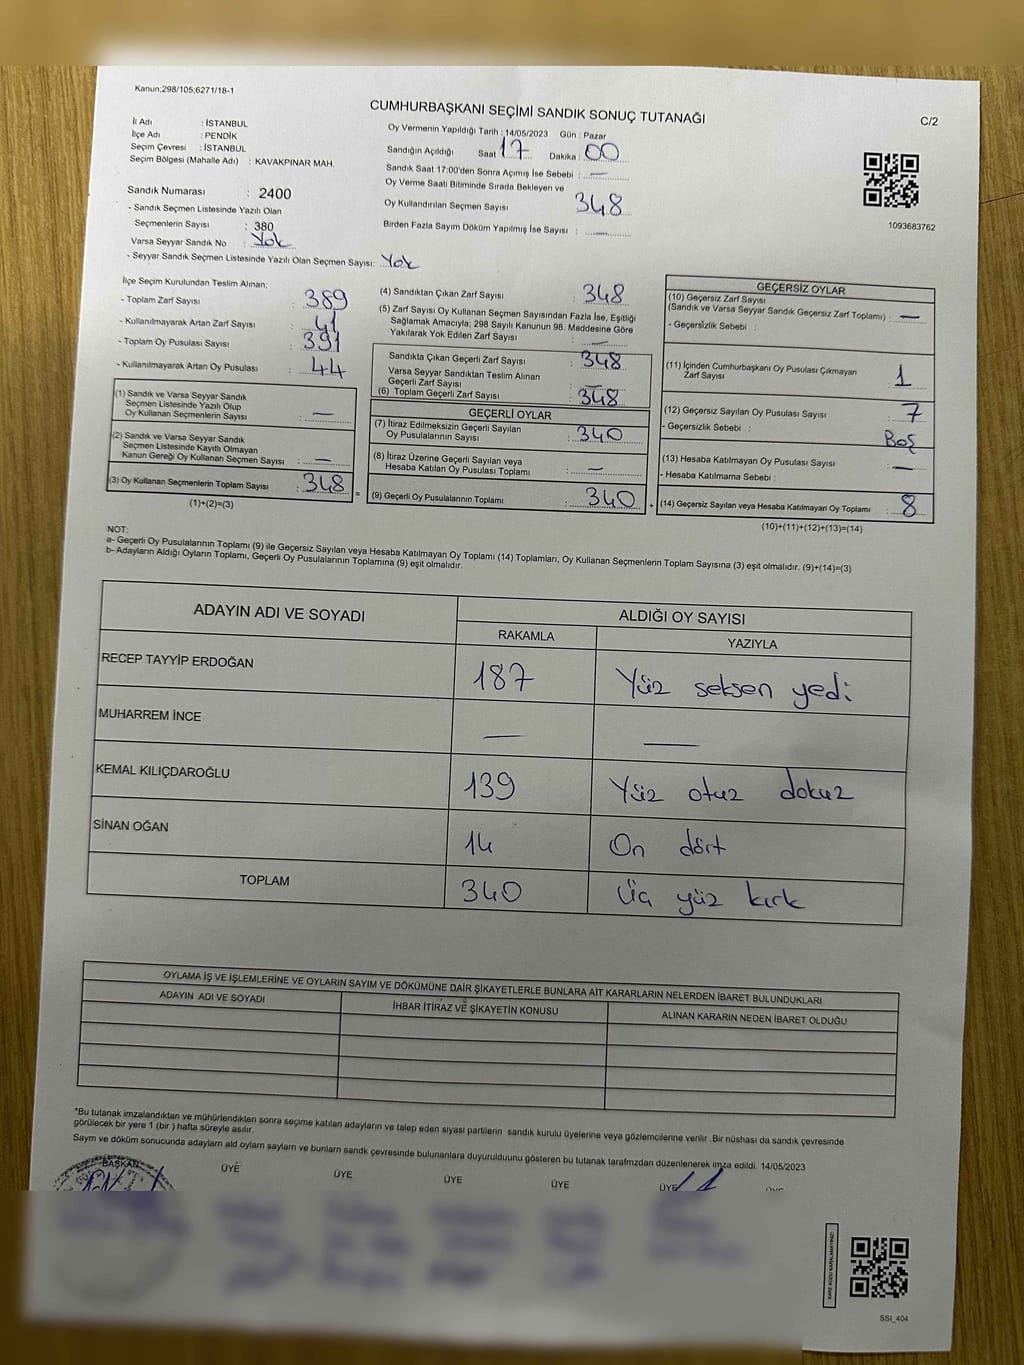 Kanun;298/105;6271/18-1
CUMHURBAŞKANI SEÇİMİ SANDIK SONUÇ TUTANAĞI
C/2
İl Adı : İSTANBUL
İlçe Adı : PENDİK
Seçim Çevresi : İSTANBUL
Seçim Bölgesi (Mahalle Adı) : KAVAKPINAR MAH.
Sandık Numarası : 2400
- Sandık Seçmen Listesinde Yazılı Olan
Seçmenlerin Sayısı : 380
Varsa Seyyar Sandık No : Yok
- Seyyar Sandık Seçmen Listesinde Yazılı Olan Seçmen Sayısı: Yok
Oy Vermenin Yapıldığı Tarih : 14/05/2023 Gün : Pazar
Sandığın Açıldığı Saat 17 Dakika : 00
Sandık Saat 17:00'den Sonra Açımış İse Sebebi : —
Oy Verme Saati Bitiminde Sırada Bekleyen ve
Oy Kullandırılan Seçmen Sayısı 348
Birden Fazla Sayım Döküm Yapılmış İse Sayısı :
1093683762
İlçe Seçim Kurulundan Teslim Alınan;
- Toplam Zarf Sayısı : 389
- Kullanılmayarak Artan Zarf Sayısı : 41
- Toplam Oy Pusulası Sayısı : 391
- Kullanılmayarak Artan Oy Pusulası : 44
(1) Sandık ve Varsa Seyyar Sandık
Seçmen Listesinde Yazılı Olup
Oy Kullanan Seçmenlerin Sayısı : —
(2) Sandık ve Varsa Seyyar Sandık
Seçmen Listesinde Kayıtlı Olmayan
Kanun Gereği Oy Kullanan Seçmen Sayısı : —
(3) Oy Kullanan Seçmenlerin Toplam Sayısı : 348
(1)+(2)=(3)
=
(4) Sandıktan Çıkan Zarf Sayısı : 348
(5) Zarf Sayısı Oy Kullanan Seçmen Sayısından Fazla İse, Eşitliği
Sağlamak Amacıyla; 298 Sayılı Kanunun 98. Maddesine Göre
Yakılarak Yok Edilen Zarf Sayısı : —
Sandıkta Çıkan Geçerli Zarf Sayısı : 348
Varsa Seyyar Sandıktan Teslim Alınan
Geçerli Zarf Sayısı : —
(6) Toplam Geçerli Zarf Sayısı : 348
GEÇERLİ OYLAR
(7) İtiraz Edilmeksizin Geçerli Sayılan
Oy Pusulalarının Sayısı : 340
(8) İtiraz Üzerine Geçerli Sayılan veya
Hesaba Katılan Oy Pusulası Toplamı : —
(9) Geçerli Oy Pusulalarının Toplamı : 340
+
GEÇERSİZ OYLAR
(10) Geçersiz Zarf Sayısı
(Sandık ve Varsa Seyyar Sandık Geçersiz Zarf Toplamı) : —
- Geçersizlik Sebebi :
(11) İçinden Cumhurbaşkanı Oy Pusulası Çıkmayan
Zarf Sayısı : 1
(12) Geçersiz Sayılan Oy Pusulası Sayısı : 7
- Geçersizlik Sebebi : Boş
(13) Hesaba Katılmayan Oy Pusulası Sayısı : —
- Hesaba Katılmama Sebebi :
(14) Geçersiz Sayılan veya Hesaba Katılmayan Oy Toplamı : 8
(10)+(11)+(12)+(13)=(14)
NOT:
a- Geçerli Oy Pusulalarının Toplamı (9) ile Geçersiz Sayılan veya Hesaba Katılmayan Oy Toplamı (14) Toplamları, Oy Kullanan Seçmenlerin Toplam Sayısına (3) eşit olmalıdır. (9)+(14)=(3)
b- Adayların Aldığı Oyların Toplamı, Geçerli Oy Pusulalarının Toplamına (9) eşit olmalıdır.
ADAYIN ADI VE SOYADI
ALDIĞI OY SAYISI
RAKAMLA YAZIYLA
RECEP TAYYİP ERDOĞAN 187 Yüz seksen yedi
MUHARREM İNCE — —
KEMAL KILIÇDAROĞLU 139 Yüz otuz dokuz
SİNAN OĞAN 14 On dört
TOPLAM 340 Üç yüz kırk
OYLAMA İŞ VE İŞLEMLERİNE VE OYLARIN SAYIM VE DÖKÜMÜNE DAİR ŞİKAYETLERLE BUNLARA AİT KARARLARIN NELERDEN İBARET BULUNDUKLARI
ADAYIN ADI VE SOYADI İHBAR İTİRAZ VE ŞİKAYETİN KONUSU ALINAN KARARIN NEDEN İBARET OLDUĞU
*Bu tutanak imzalandıktan ve mühürlendikten sonra seçime katılan adayların ve talep eden siyasi partilerin sandık kurulu üyelerine veya gözlemcilerine verilir .Bir nüshası da sandık çevresinde
görülecek bir yere 1 (bir ) hafta süreyle asılır.
Sayım ve döküm sonucunda adayların ald oyların sayların ve bunların sandık çevresinde bulunanlara duyurulduunu gösteren bu tutanak tarafmzdan düzenlenerek imza edildi. 14/05/2023
BAŞKAN ÜYE ÜYE ÜYE ÜYE ÜYE
KARE KODU KARALAMAYINIZ!
SSI_404